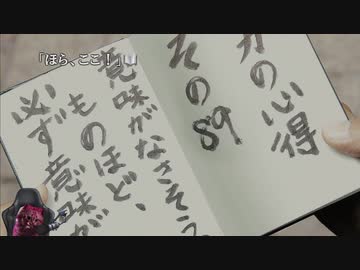 「ほら、ここ！」
カの心得
その89
意味がなさそう
ものほど、
必ず意味が